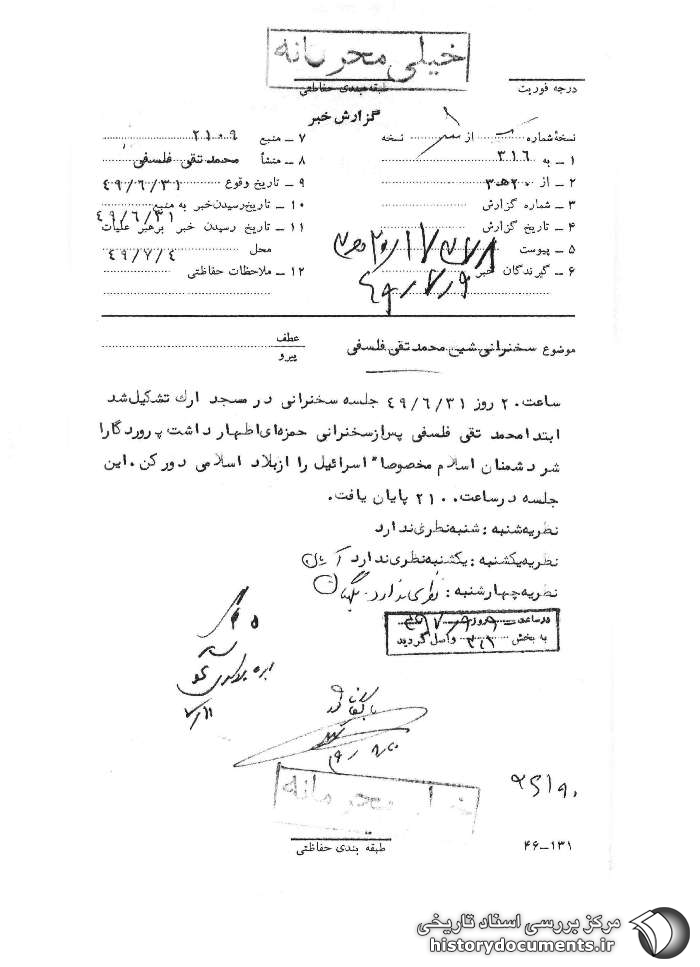 خیلی محرمانه
درجه فوریت
طبقه بندی حفاظتی
گزارش خبر
نسخهٔ شماره از نسخه
۱ – به ۳۱۶
۲ – از ۲۰ هـ ۳
۳ – شماره گزارش
۴ – تاریخ گزارش
۵ – پیوست
۶ – گیرندگان خبر
۷ – منبع ۲۱۰۹
۸ – منشأ محمد تقی فلسفی
۹ – تاریخ وقوع ۴۹/۶/۳۱
۱۰ – تاریخ رسیدن خبر به منبع ۴۹/۶/۳۱
۱۱ – تاریخ رسیدن خبر برهبر عملیات
محل ۴۹/۷/۴
۱۲ – ملاحظات حفاظتی
موضوع سخنرانی شیخ محمد تقی فلسفی
عطف
پیرو
ساعت ۲۰ روز ۴۹/۶/۳۱ جلسه سخنرانی در مسجد ارك تشکیل شد
ابتدا محمد تقی فلسفی پس از سخنرانی حمزه‌ای اظهار داشت پروردگارا
شر دشمنان اسلام مخصوصاً اسرائیل را از بلاد اسلامی دور کن . این
جلسه در ساعت ۲۱۰۰ پایان یافت.
نظریه شنبه : شنبه نظری ندارد
نظریه یکشنبه : یکشنبه نظری ندارد
نظریه چهارشنبه : نظری ندارد.
در ساعت روز
به بخش ۳۲۱ واصل گردید
خیلی محرمانه
طبقه بندی حفاظتی
۴۶–۱۳۱
مرکز بررسی اسناد تاریخی
historydocuments.ir